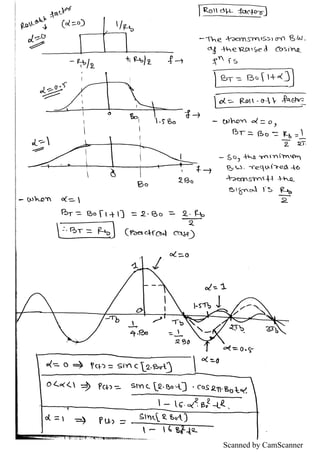 Roll off factor (α=0)
α=0
1/Rb
Roll off factor
-Rb/2
+Rb/2
f→
- The transmission B.W. of the raised cosine fⁿ is
BT = Bo[1+α]
α = Roll-off factor
α=0.5
0
Bo
1.5Bo
f→
- when α=0,
BT = Bo = Rb/2 = 1/2T
α=1
0
Bo
2Bo
f→
- So, the minimum B.W. required to transmit the signal is Rb/2
- when α=1
BT = Bo[1+1] = 2·Bo = 2·Rb/2
∴ BT = Rb (Practical case)
α=0
1
α=1
1.5Tb
-Tb
0
Tb
2Tb
3Tb
1/4Bo
= 1/2Bo
α=0
α=0.5
α=0 ⇒ P(t) = sinc[2·Bot]
0<α<1 ⇒ P(t) = sinc[2·Bo·t]·cos2π·Botα / 1-16·α²·Bo²·t²
α=1 ⇒ P(t) = sin[2Bot] / 1-16Bo²t²
Scanned by CamScanner